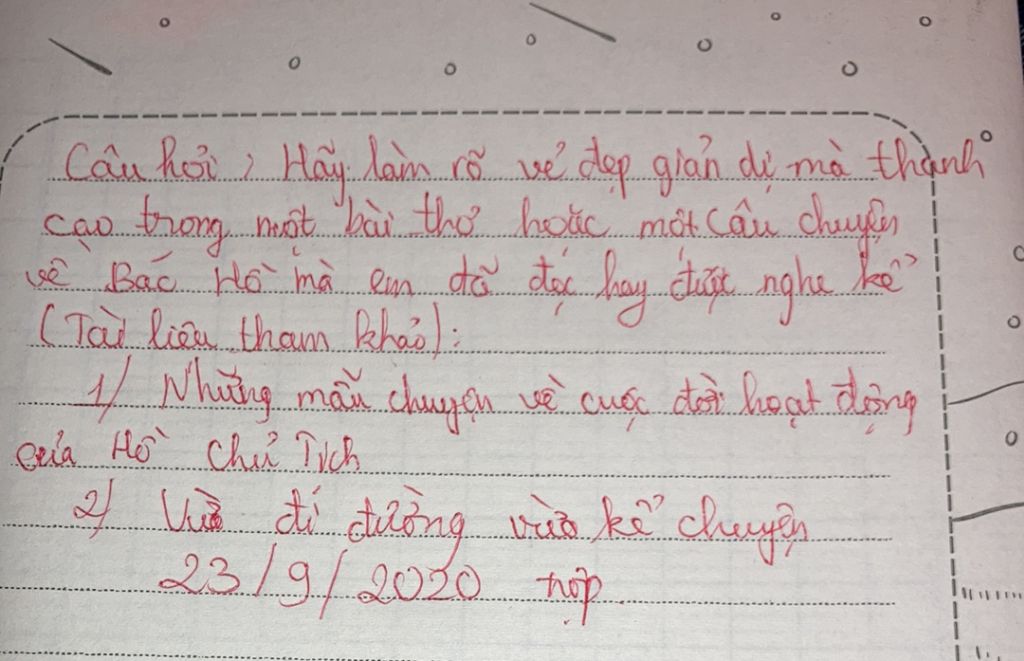 Câu hỏi : Hãy làm rõ vẻ đẹp giản dị mà thanh
cao trong một bài thơ hoặc một câu chuyện
về Bác Hồ mà em đã đọc hay được nghe kể
(Tài liệu tham khảo):
1/ Những mẫu chuyện về cuộc đời hoạt động
của Hồ Chủ Tịch
2/ Vừa đi đường vừa kể chuyện
23/9/2020 nộp.